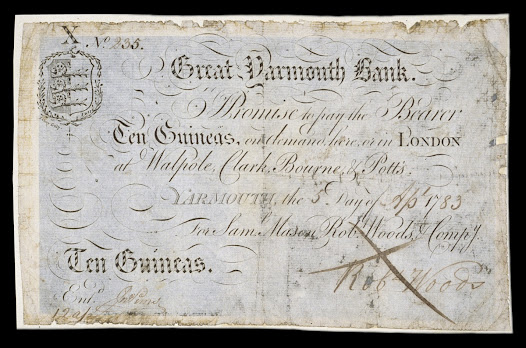 X
No. 235.
Great Yarmouth Bank.
I Promise to pay the Bearer
Ten Guineas, on demand, here, or in LONDON
at Walpole, Clark, Bourne, & Potts.
YARMOUTH, the 5 Day of Apl. 1783
For Sam. Mason, Rob. Woods, & Compy.
Ten Guineas.
Rob. Woods
Entd.